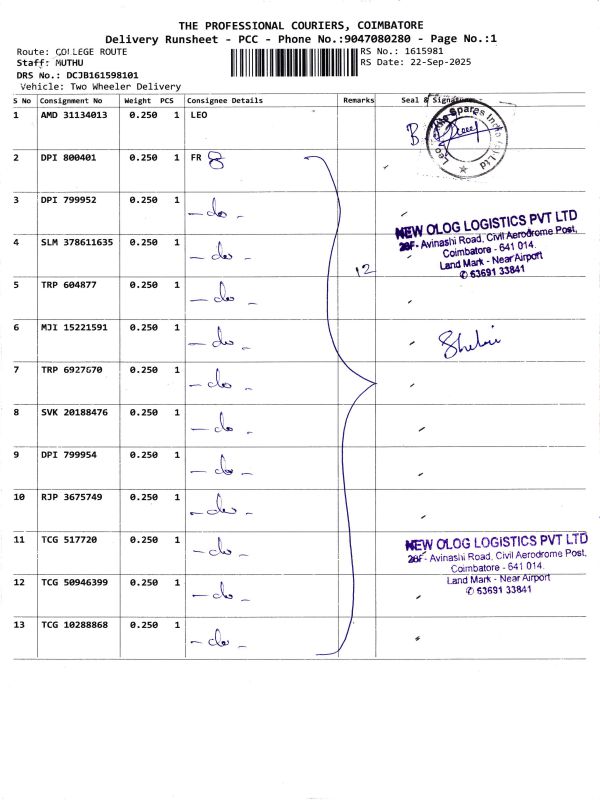 THE PROFESSIONAL COURIERS, COIMBATORE
Delivery Runsheet - PCC - Phone No.:9047080280 - Page No.:1
Route: COLLEGE ROUTE RS No.: 1615981
Staff: MUTHU RS Date: 22-Sep-2025
DRS No.: DCJB161598101
Vehicle: Two Wheeler Delivery
S No Consignment No Weight PCS Consignee Details Remarks Seal & Signature
1 AMD 31134013 0.250 1 LEO
2 DPI 800401 0.250 1 FR
3 DPI 799952 0.250 1 - do -
NEW OLOG LOGISTICS PVT LTD
28F- Avinashi Road, Civil Aerodrome Post,
4 SLM 378611635 0.250 1 - do -
Coimbatore - 641 014.
Land Mark - Near Airport
✆ 63691 33841
12
5 TRP 604877 0.250 1 - do -
6 MJI 15221591 0.250 1 - do -
7 TRP 6927670 0.250 1 - do -
8 SVK 20188476 0.250 1 - do -
9 DPI 799954 0.250 1 - do -
10 RJP 3675749 0.250 1 - do -
11 TCG 517720 0.250 1 - do -
NEW OLOG LOGISTICS PVT LTD
28F- Avinashi Road, Civil Aerodrome Post,
Coimbatore - 641 014.
12 TCG 50946399 0.250 1 - do -
Land Mark - Near Airport
✆ 63691 33841
13 TCG 10288868 0.250 1 - do -